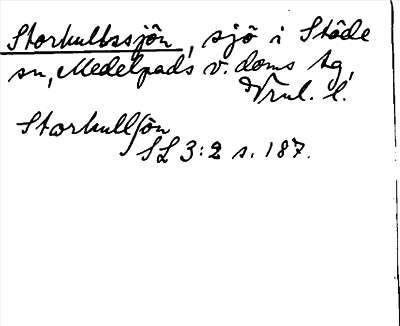 Storkullssjön, sjö i Stöde
sn, Medelpads v. doms tg,
Vrnl. l.
Storkullsjön
SL 3:2 s. 187.